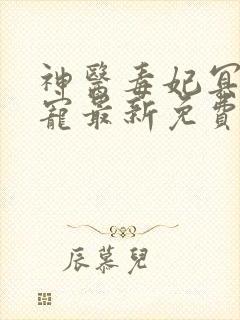 神醫毒妃冥
寵最新免費
辰慕兒